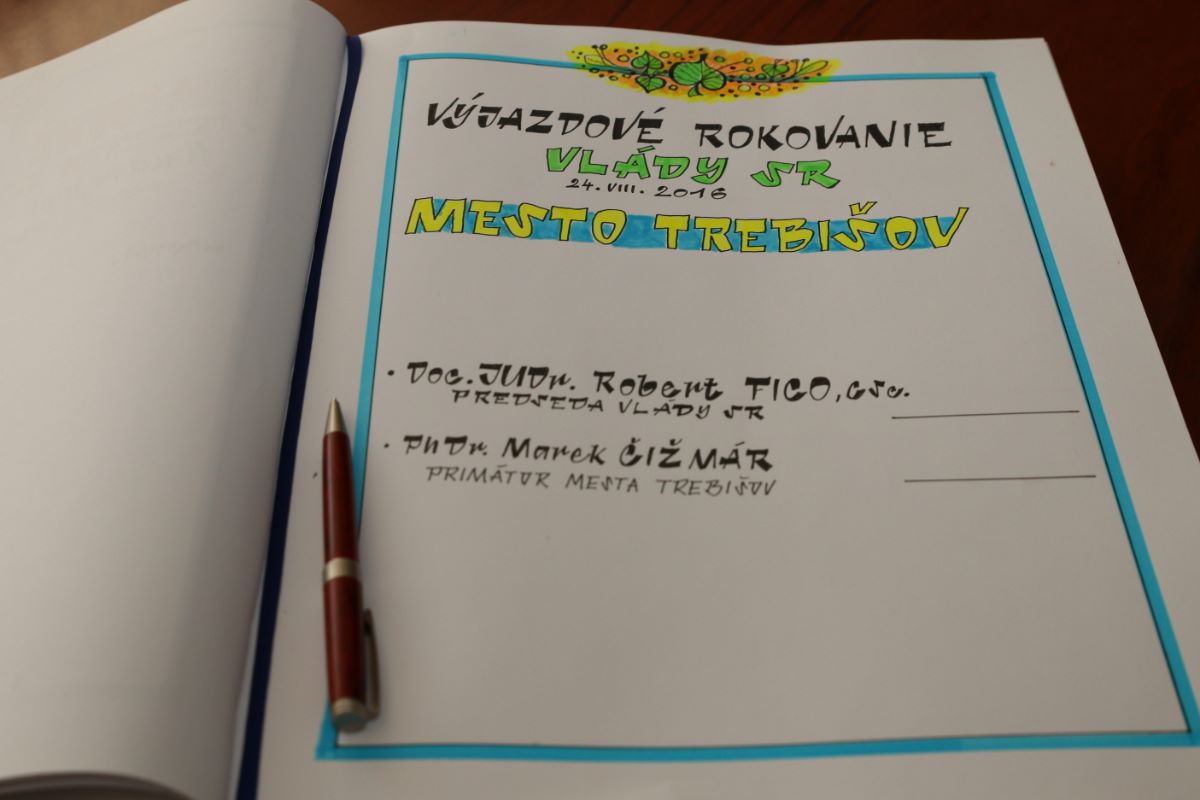 VÝJAZDOVÉ ROKOVANIE
VLÁDY SR
24. VIII. 2016
MESTO TREBIŠOV
• Doc. JUDr. Robert FICO, CSc.
PREDSEDA VLÁDY SR
• PhDr. Marek ČIŽMÁR
PRIMÁTOR MESTA TREBIŠOV